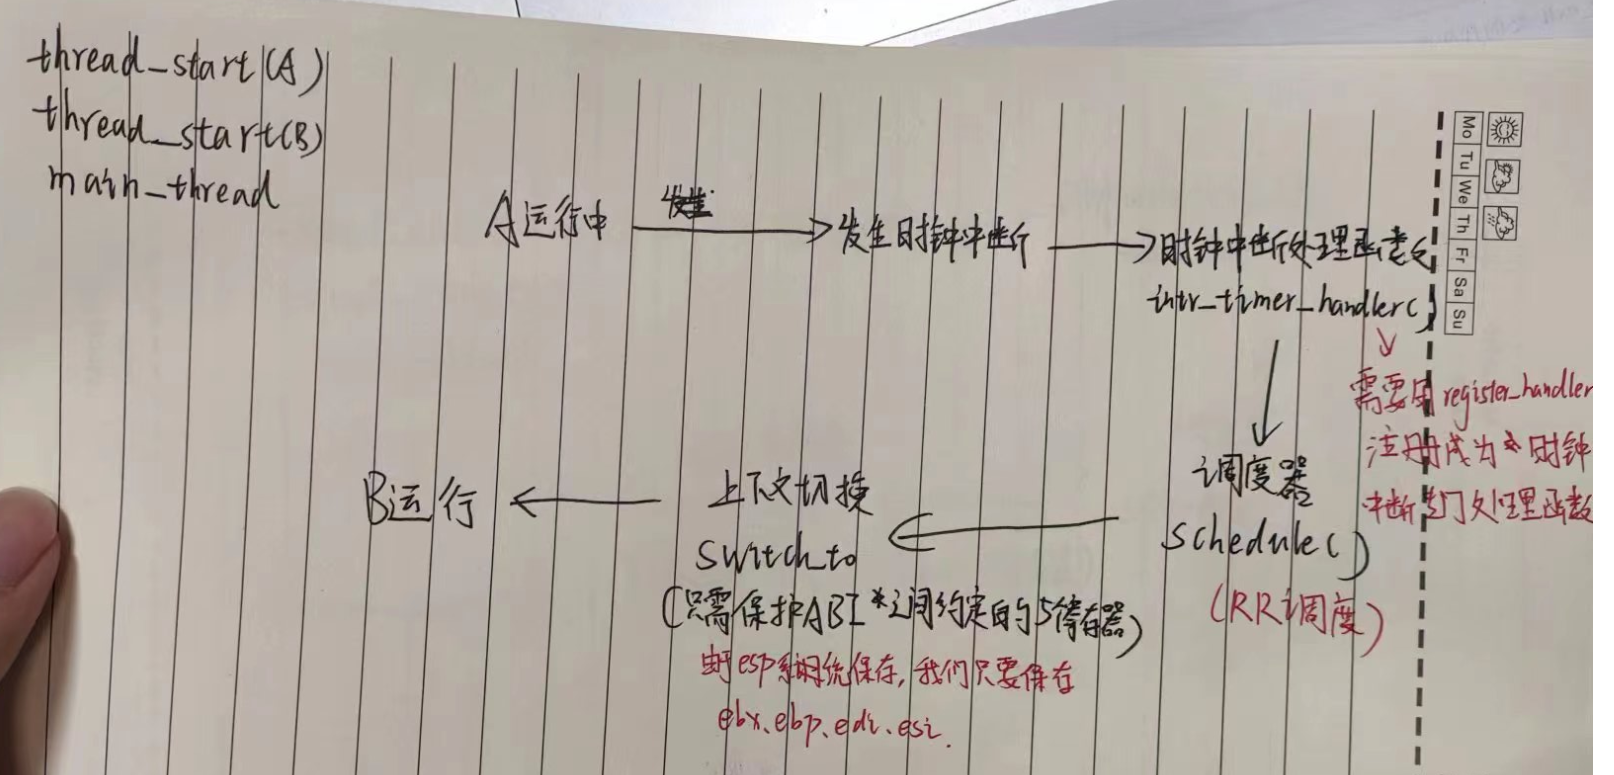 thread_start(A)
thread_start(B)
main_thread
A运行中
发生
发生时钟中断
时钟中断处理函数
intr_timer_handler()
需要用register_handler
注册成为时钟
中断专门处理函数
调度器
schedule()
(RR调度)
上下文切换
switch_to
(只需保护ABI之间约定的5个寄存器)
由于esp系统保存,我们只要保存
ebx、ebp、edi、esi.
B运行
Mo
Tu
We
Th
Fr
Sa
Su